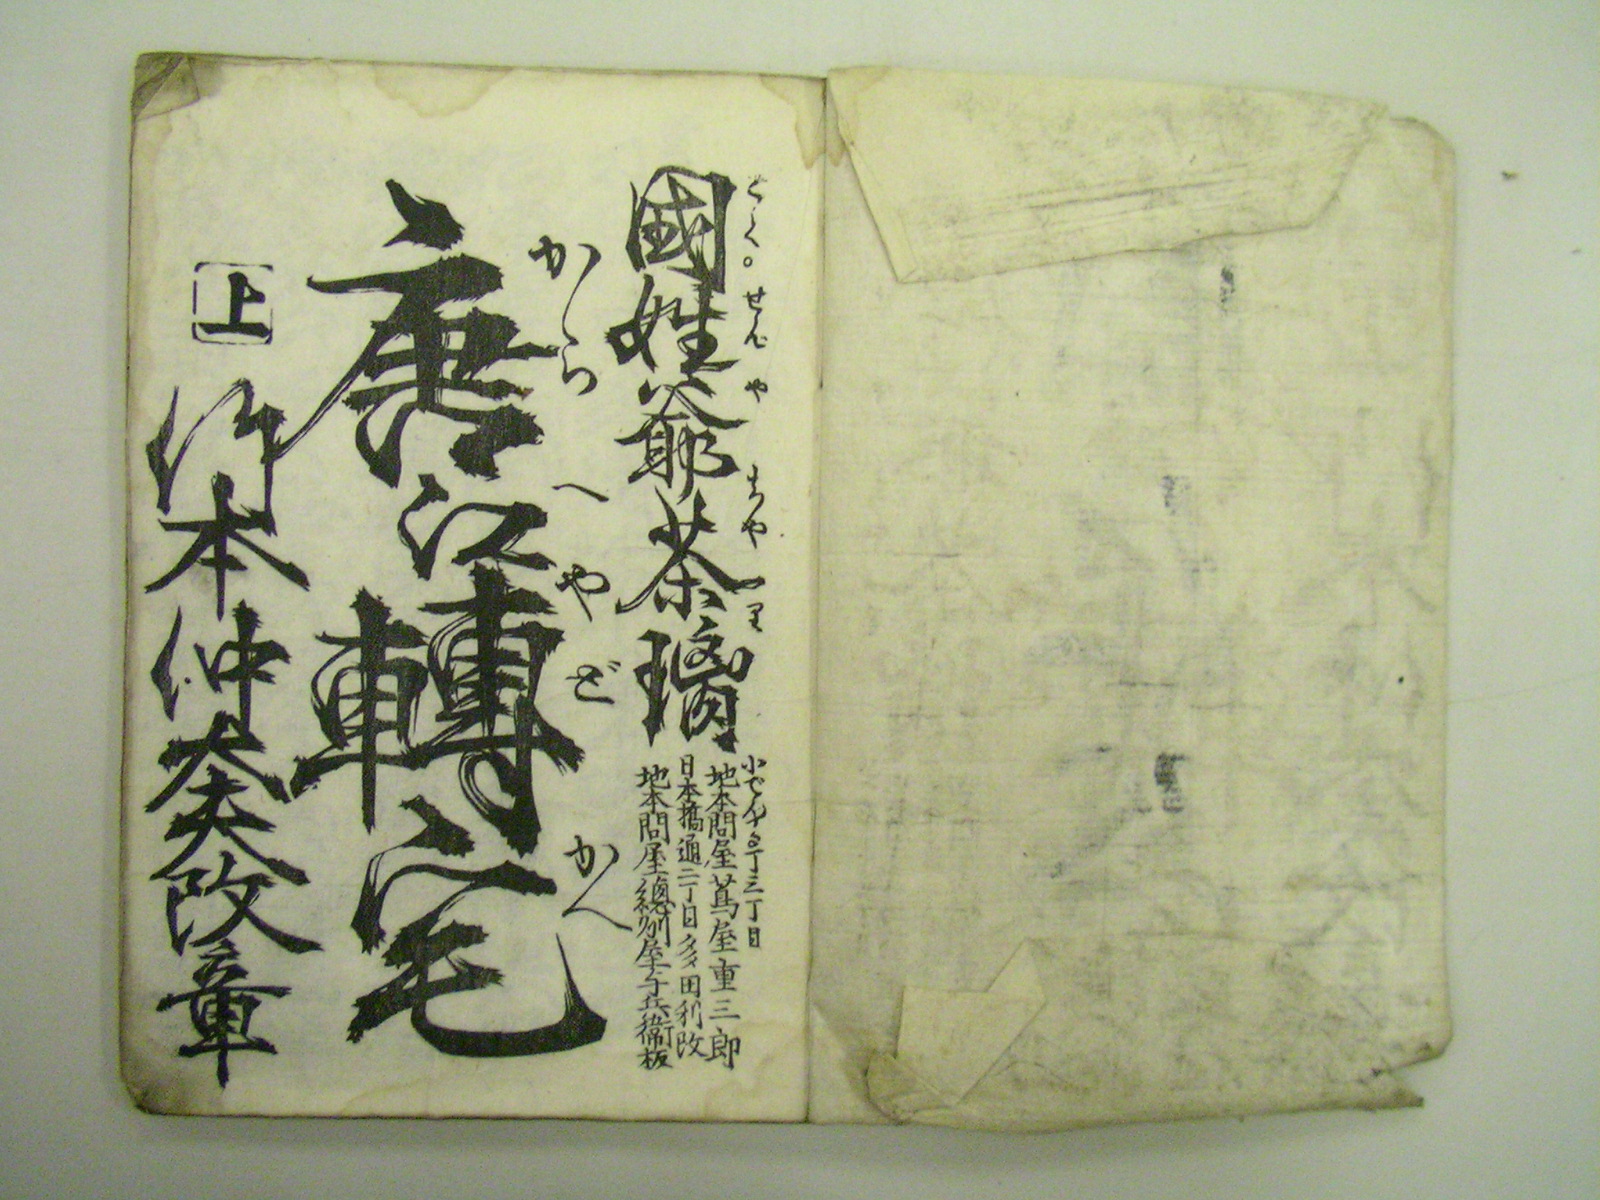 國姓爺茶璃
こく。せんやちやーり
小でんま丁三丁目
地本問屋蔦屋重三郎
日本橋通二丁目多田利改
地本問屋總州屋与兵衛板
からへやどかへ
唐江轉宅
上
竹本仲太夫改章